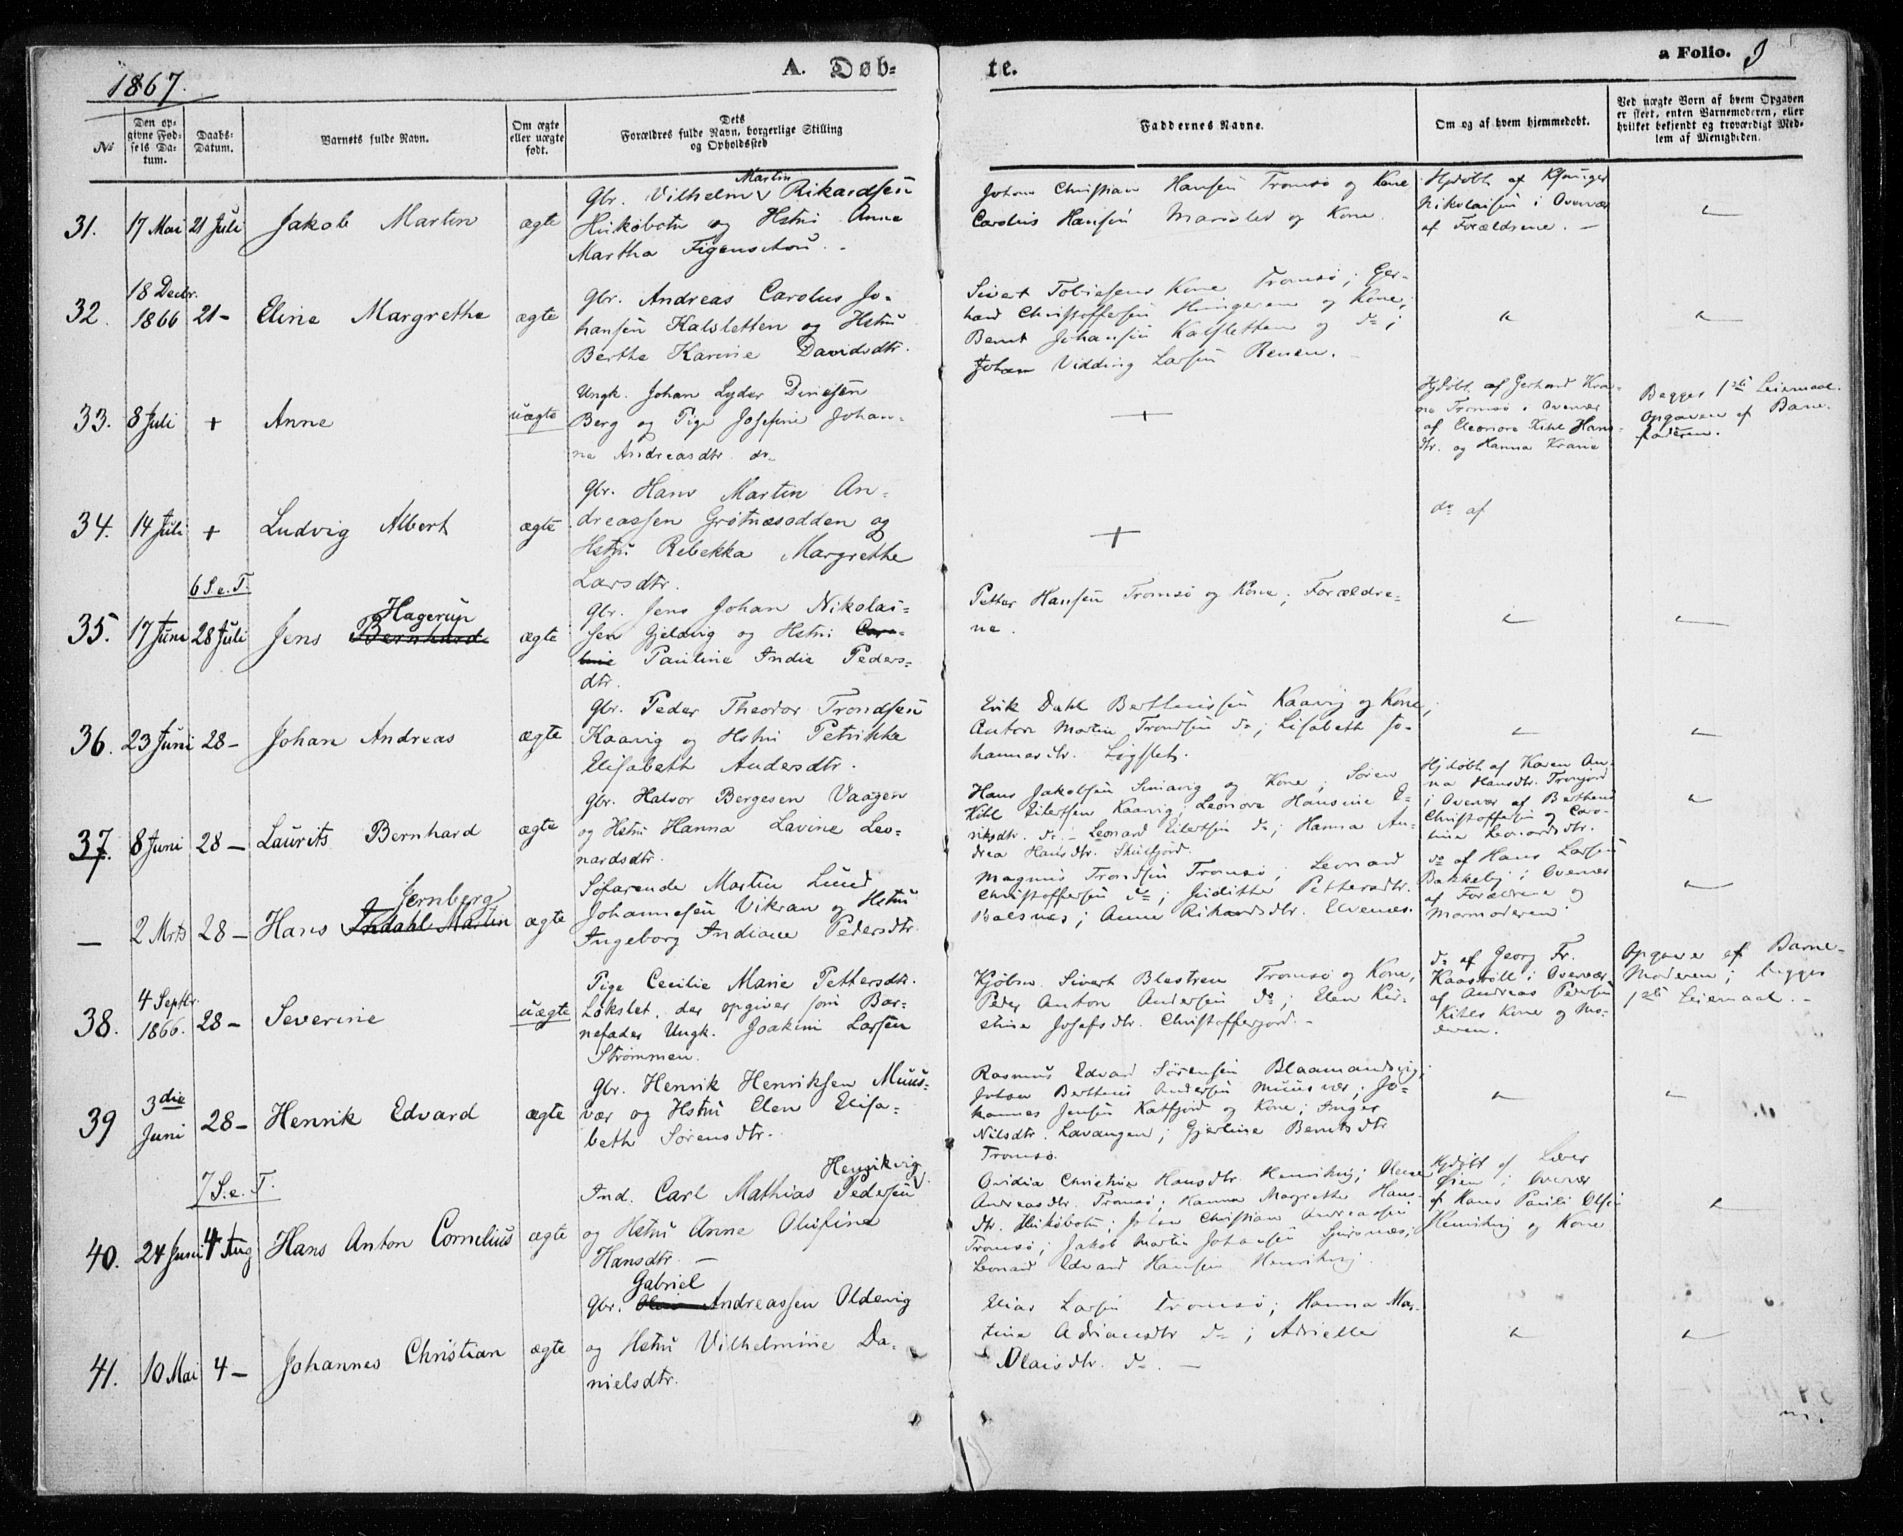 1867.
A. Døb-
te.
a Folio. 9
No
Den op-
givne Fød-
sels Da-
tum.
Daabs-
Datum.
Barnets fulde Navn.
Om ægte
eller uægte
født.
Dets
Forældres fulde Navn, borgerlige Stilling
og Opholdssted
Faddernes Navne.
Om og af hvem hjemmedøbt.
Ved uægte Born af hvem Opgaven
er skeet, enten Barnemoderen, eller
hvilket bekjendt og troværdigt Med-
lem af Menigheden.
31. 17 Mai 21 Juli Jakob Martin ægte
Gbr. Vilhelm Martin Rikardsen
og Hstru Anne
Martha Figenschou.
Johan Christian Hansen Tromsø og Kone
Carolus Hansen og Kone.
Hjdøbt af
Nikolaisen i Overvær
af Forældrene.
32. 18 Decbr. 1866 21- Eline Margrethe ægte
Gbr. Andreas Carolus Jo-
hansen Kalsletten og Hstru
Berthe Karine Davidsdtr.
Sivert Tobiesens Kone Tromsø; Ger-
hard Christoffersen og Kone;
Bernt Johansen Kalsletten og do;
Johan Vidding Larsen Renen.
33. 8 Juli + Anne uægte
Ungk. Johan Lyder Dinesen
Berg og Pige Josefine Johan-
ne Andreasdtr. do
+
Hjdøbt af Gerhard Kra-
ne Tromsø i Overvær
af Eleonore Kihl Hans-
dtr. og Hanna Krane
Begges 1ste Leiermaal.
Opgaven af Barne-
faderen.
34. 14 Juli + Ludvig Albert ægte
Gbr. Hans Martin An-
dreassen Grøtnæsodden og
Hstru Rebekka Margrethe
Larsdtr.
+
do af
6 S. e. T.
35. 17 Juni 28 Juli Jens Bernhard Hagerup ægte
Gbr. Jens Johan Nikolai-
sen Gjeldvig og Hstru Caro-
line Pauline Indie Peders-
dtr.
Petter Hansen Tromsø og Kone; Forældre-
ne.
36. 23 Juni 28- Johan Andreas ægte
Gbr. Peder Theodor Trondsen
Kaavig og Hstru Petrikke
Elisabeth Andersdtr.
Erik Dahl Berthiussen Kaavig og Kone;
Anton Martin Trondsen do; Lisabeth Jo-
hannesdtr.
37. 8 Juni 28- Laurits Bernhard ægte
Gbr. Halvor Bergesen Vaagen
og Hstru Hanna Lavine Leo-
nardsdtr.
Hans Jakobsen Simavig og Kone; Søren
Kihl Eilertsen Kaavig; Leonore Hansine E-
riksdtr. do - Leonard Eilertsen do; Hanna An-
drea Hansdtr. Skulsfjord.
Hjdøbt af Karen An-
na Hansdtr.
i Overvær af Berthine
Christoffersen og Caro-
line Leonardsdtr.
- 2 Mrts 28- Hans Indahl Martin Jernberg ægte
Søfarende Martin Lund
Johannesen Vikran og Hstru
Ingeborg Indiane Pedersdtr.
Magnus Trondsen Tromsø; Leonard
Christoffersen do; Judithe Pettersdtr.
Balsnes; Anne Rikardsdtr. Elvenes.
do af Hans Larsen
Bakkeby i Overvær
af Forældrene og
Mormoderen.
38. 4 Septbr. 1866. 28- Severine uægte
Pige Cecilie Marie Pettersdtr.
Løkslet, der opgiver som Bar-
nefader Ungk. Joakim Larsen
Strømmen.
Kjøbm. Sivert Tromsø og Kone;
Peder Anton Andersen do; Elen Kir-
stine Josefsdtr. Christofferjord.
do af Georg Fr.
i Overvær
af Andreas Pedersen
Kihls Kone og Mo-
deren.
Opgave af Barne-
Moderen; begges
1ste Leiermaal.
39 3die Juni 28- Henrik Edvard ægte
Gbr. Henrik Henriksen Muus-
vær og Hstru Elen Elisa-
beth Sørensdtr.
Rasmus Edvard Sørensen Blaamandsvig;
Johan Berthius Andersen Muusvær; Jo-
hannes Jensen Katfjord og Kone; Inger
Nilsdtr. Lavangen; Gjertine Berntsdtr
Tromsø.
7 S. e. T.
40. 24 Juni 4 Aug Hans Anton Cornelius ægte
Ind. Carl Mathias Pedersen Henrikvig
og Hstru Anne Olufine
Hansdtr.
Ovidia Christine Hansdtr. Henrikvig; Oline
Andreasdtr. Tromsø; Hanna Margrethe Hans-
dtr. Johan Christian Andreassen
Tromsø; Jakob Martin Johansen
Leonard Edvard Hansen Henrikvig.
Hjdøbt af
i Overvær
af Hans Pauli Olsen
Henrikvig og Kone
41. 10 Mai 4- Johannes Christian ægte
Gbr. Gabriel Andreassen Oldevig
og Hstru Vilhelmine Da-
nielsdtr.
Elias Larsen Tromsø; Hanna Mar-
tine Adriansdtr do;
Olaisdtr. do.